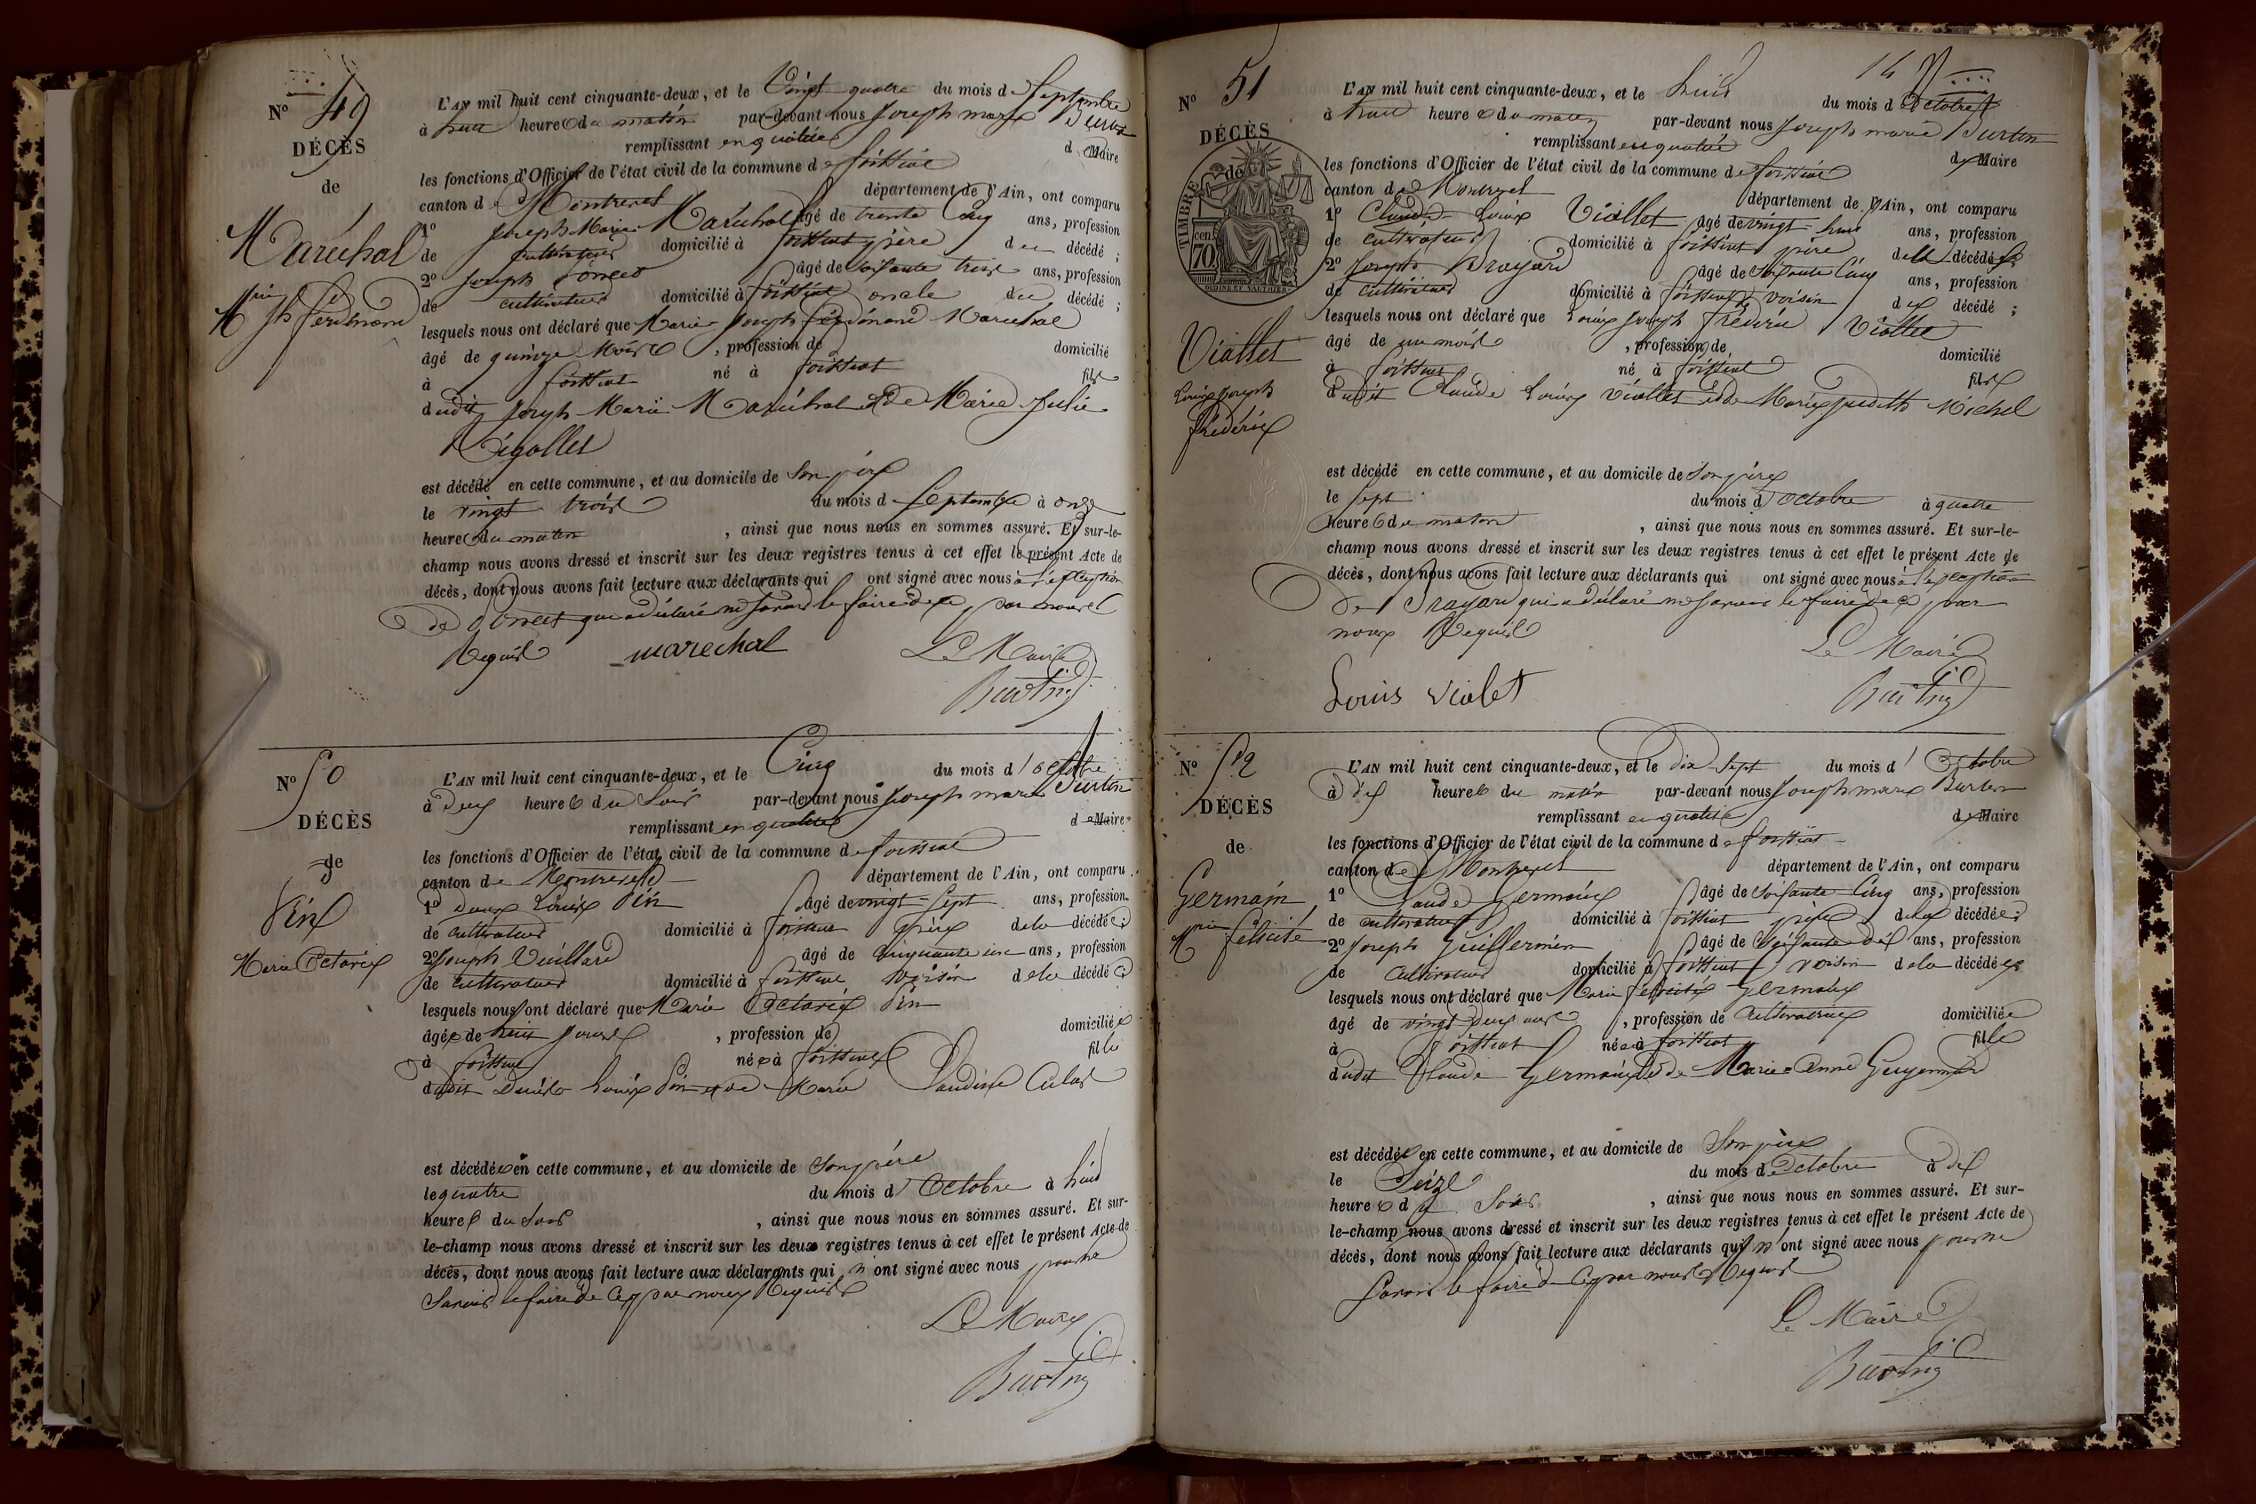 N° 49
DÉCÈS
de
Maréchal
Mrie Jh Ferdinand
L'AN mil huit cent cinquante-deux, et le Vingt quatre du mois de Septembre
à huit heures du matin par-devant nous Joseph marie Burtin
remplissant en qualité de Maire
les fonctions d'Officier de l'état civil de la commune de foissiat
canton de Montrevel département de l'Ain, ont comparu
1° Joseph Marie Maréchal âgé de trente Cinq ans, profession
de cultivateur domicilié à foissiat père du décédé ;
2° Joseph âgé de soixante trois ans, profession
de cultivateur domicilié à foissiat oncle du décédé ;
lesquels nous ont déclaré que Marie Joseph ferdinand Marechal
âgé de quinze Mois , profession de domicilié
à foissiat né à foissiat fils
dudit Joseph Marie Maréchal et De Marie Julie
Rigollet
est décédé en cette commune, et au domicile de Son père
le vingt trois du mois de Septembre à onze
heures du matin , ainsi que nous nous en sommes assuré. Et sur-le-
champ nous avons dressé et inscrit sur les deux registres tenus à cet effet le présent Acte de
décès, dont nous avons fait lecture aux déclarants qui ont signé avec nous à l'exception
de qui a déclaré ne savoir le faire de ce par nous
Requis marechal Le Maire
Burtin
N° 50
DÉCÈS
de
Pin
Marie Octavie
L'AN mil huit cent cinquante-deux, et le Cinq du mois d'octobre
à Deux heures du Soir par-devant nous Joseph marie Burtin
remplissant en qualité de Maire
les fonctions d'Officier de l'état civil de la commune de foissiat
canton de Montrevel département de l'Ain, ont comparu
1° Louis Pin âgé de vingt-Sept ans, profession
de cultivateur domicilié à foissiat père de la décédée ;
2° Joseph Vuillard âgé de cinquante un ans, profession
de cultivateur domicilié à foissiat voisin de la décédée ;
lesquels nous ont déclaré que Marie Octavie Pin
âgée de huit jours , profession de domiciliée
à foissiat née à foissiat fille
dudit Louis Pin et de Marie Claudine
est décédée en cette commune, et au domicile de Son père
le quatre du mois d'Octobre à huit
heures du Soir , ainsi que nous nous en sommes assuré. Et sur-
le-champ nous avons dressé et inscrit sur les deux registres tenus à cet effet le présent Acte de
décès, dont nous avons fait lecture aux déclarants qui n'ont signé avec nous pour ne
Savoir le faire de ce par nous Requis
Le Maire
Burtin
14
N° 51
DÉCÈS
de
TIMBRE
cent 70
Viallet
Louis Joseph
frédéric
L'AN mil huit cent cinquante-deux, et le huit du mois d'Octobre
à huit heures du matin par-devant nous Joseph marie Burtin
remplissant en qualité de Maire
les fonctions d'Officier de l'état civil de la commune de foissiat
canton de Montrevel département de l'Ain, ont comparu
1° Claude Louis Viallet âgé de vingt huit ans, profession
de cultivateur domicilié à foissiat père du décédé ;
2° Joseph Brayard âgé de soixante Cinq ans, profession
de cultivateur domicilié à foissiat voisin du décédé ;
lesquels nous ont déclaré que Louis Joseph frédéric Viallet
âgé de un mois , profession de domicilié
à foissiat né à foissiat fils
dudit Claude Louis Viallet et de Marie Judith Michel
est décédé en cette commune, et au domicile de Son père
le Sept du mois d'octobre à quatre
heures du matin , ainsi que nous nous en sommes assuré. Et sur-le-
champ nous avons dressé et inscrit sur les deux registres tenus à cet effet le présent Acte de
décès, dont nous avons fait lecture aux déclarants qui ont signé avec nous à l'exception
De Brayard qui a déclaré ne savoir le faire de ce par
nous Requis Le Maire
Louis violet Burtin
N° 52
DÉCÈS
de
Germain
Mrie félicité
L'AN mil huit cent cinquante-deux, et le dix Sept du mois d'Octobre
à dix heures du matin par-devant nous Joseph marie Burtin
remplissant en qualité de Maire
les fonctions d'Officier de l'état civil de la commune de foissiat
canton de Montrevel département de l'Ain, ont comparu
1° Claude Germain âgé de soixante Cinq ans, profession
de cultivateur domicilié à foissiat père de la décédée ;
2° Joseph Guillermin âgé de soixante dix ans, profession
de cultivateur domicilié à foissiat voisin de la décédée
lesquels nous ont déclaré que Marie félicité Germain
âgé de vingt Deux ans , profession de cultivatrice domiciliée
à foissiat née à foissiat fille
dudit Claude Germain et de Marie Anne
est décédée en cette commune, et au domicile de Son père
le Seize du mois d'Octobre à dix
heures du Soir , ainsi que nous nous en sommes assuré. Et sur-
le-champ nous avons dressé et inscrit sur les deux registres tenus à cet effet le présent Acte de
décès, dont nous avons fait lecture aux déclarants qui n'ont signé avec nous pour ne
Savoir le faire de ce par nous Requis
Le Maire
Burtin